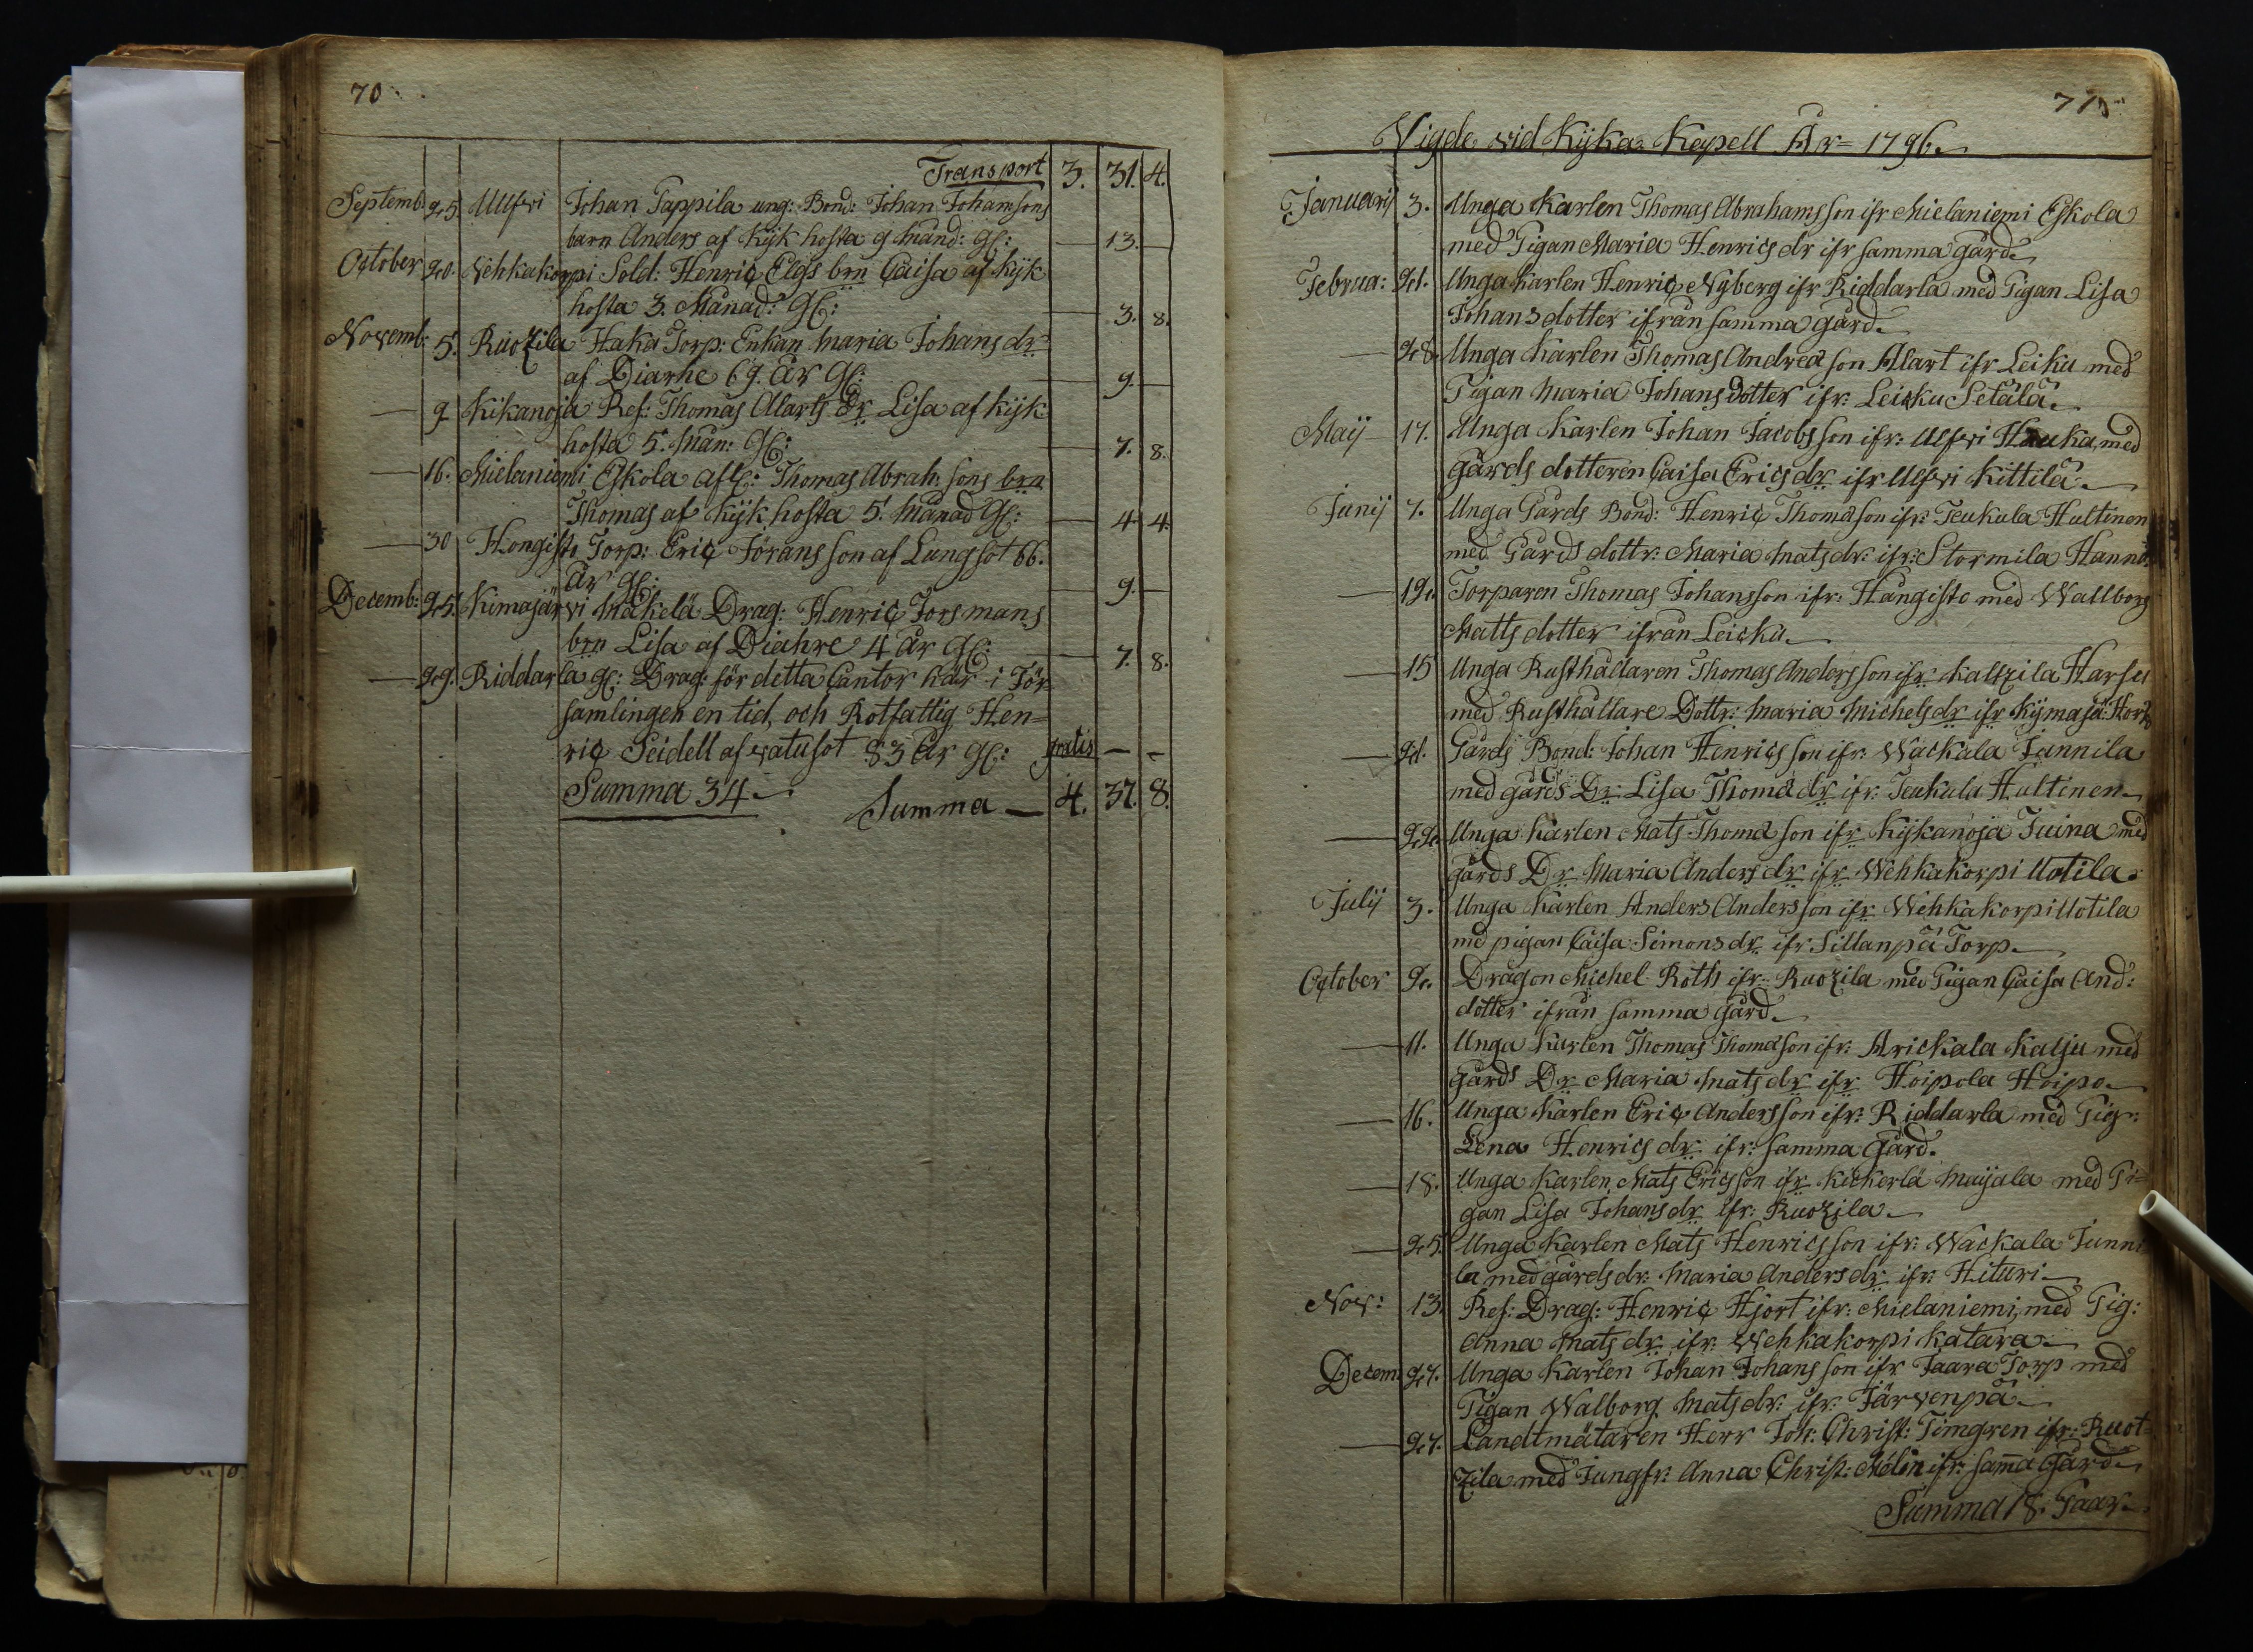 70
Transport 3. 31. 4.
Septemb: 25. Ulfvi Johan Pappila ung: Bond: Johan Johanssons
barn Anders af Kijk hosta 9 Månd: Gl: — 13. —
October 20. Vehkakorpi Sold: Henric Elgs brn Caisa af kijk
hosta 3. Månad: Gl: — 3. 8.
Novemb: 5. Ruozila Haka Torp: Enkan Maria Johans dr
af Diarhe 69. År Gl: — 9. —
— 9 Kikanoja Ref: Thomas Alarts dr Lisa af kijk
hosta 5. Mån: Gl: — 7. 8.
— 16. Mielaniemi Eskola Afl: Thomas Abrah: sons brn
Thomas af kijk hosta 5. Månad Gl: — 4. 4.
— 30 Hongisto Torp: Eric Jörans son af Lungsot 66.
År Gl: — 9. —
Decemb: 25. Kimajärvi Mäkelä Drag: Henric Forsmans
brn Lisa af Diahre 4 År Gl: — 7. 8.
— 29. Riddarla gl: Drag: för detta Cantor här i För-
samlingen en tid, och Rotfattig Hen=
ric Seidell af vatusot 83 År Gl: gratis — —
Summa 34 Summa — 4. 37. 8.
Vigde vid Kijka Kapell År = 1796.
Januarij 3. Unga Karlen Thomas Abrahamsson ifr Mielaniemi Eskola
med Pigan Maria Henrics dr ifr samma gård.
Februa: 21. Unga Karlen Henric Nyberg ifr Riddarla med Pigan Lisa
Johansdotter ifrån samma gård.
— 28. Unga Karlen Thomas Andreæ son Alart ifr Leiku med
Pigan Maria Johans dotter ifr: Leicku Setälä.
Maij 17. Unga Karlen Johan Jacobs son ifr: Ulfvi Hauka, med
gårds dotteren Caisa Erics dr ifr Ulfvi Kittilä.
Junij 7. Unga Gårds Bond: Henric Thomæson ifr: Teukula Hultinen
med Gårds dottr: Maria Mats dr: ifr: Stormila Hannu.
— 12. Torparen Thomas Johansson ifr: Hångisto med Wallborg
Matts dotter ifrån Leicku.
— 15 Unga Rusthållaren Thomas Anders son ifr Kallzila Harsu
med Rusthållare Dottr: Maria Michels dr ifr Kijmajä: Hork
— 21. Gårds Bond: Johan Henrics son ifr: Wackala Junnila
med gårds Dr: Lisa Thomæ dr ifr: Teukula Hultinen.
— 22. Unga Karlen Mats Thomæ son ifr Kijkanoja Juina med
gårds Dr Maria Anders dr ifr Wehkakorpi Uotila.
Julij 3. Unga Karlen Anders Anders son ifr Wehkakorpi Uotila
md pigan Caisa Simons dr ifr. Sillanpä Torp.
October 2. Dragon Michel Roth ifr: Ruozila med Pigan Caisa And:
dotter ifrån samma gård.
— 11. Unga Karlen Thomas Thomæson ifr: Arickala Kalju med
gårds Dr Maria Mats dr ifr Hoipola Hoipo.
— 16. Unga Karlen Eric Anders son ifr: Riddarla med Pig:
Lena Henrics dr ifr: samma Gård.
— 18. Unga Karlen Mats Ericsson ifr Kickerlä Maijala med Pi=
gan Lisa Johans dr ifr: Ruozila.
— 25. Unga Karlen Mats Henrics son ifr: Wackala Junni
la med gårds dr: Maria Anders dr ifr: Hituri.
Nov: 13. Ref: Drag: Henric Hjort ifr: Mielaniemi, med Pig:
Anna Mats dr ifr: Wehkakorpi Katara.
Decem 27. Unga Karlen Johan Johans son ifr Jaara Torp med
Pigan Walborg Mats dr: ifr: Järvenpä.
— 27. Landtmätaren Herr Joh: Christ: Timgren ifr: Ruot=
zila med Jungfr: Anna Christ: Melin ifr: sama Gård.
Summa 18. Paar.